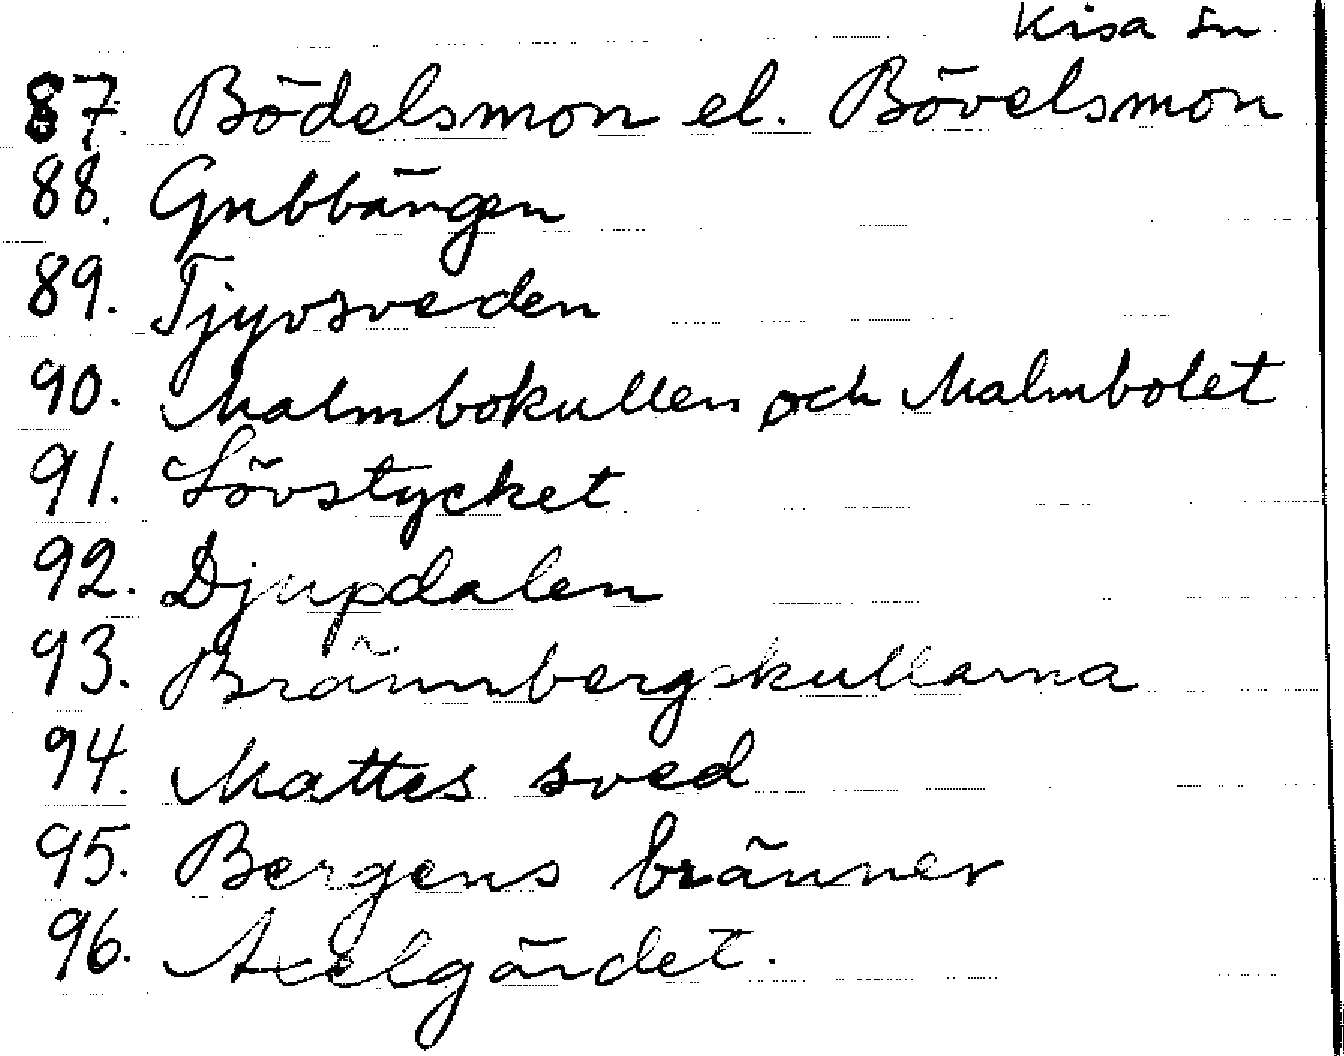 Kisa sn
87. Bödelsmon el. Bövelsmon
88. Gubbängen
89. Tjyvsveden
90. Malmbokullen och Malmbolet
91. Lövstycket
92. Djupdalen
93. Brännbergskullarna
94. Mattes sved
95. Bergens bränner
96. Axelgärdet.